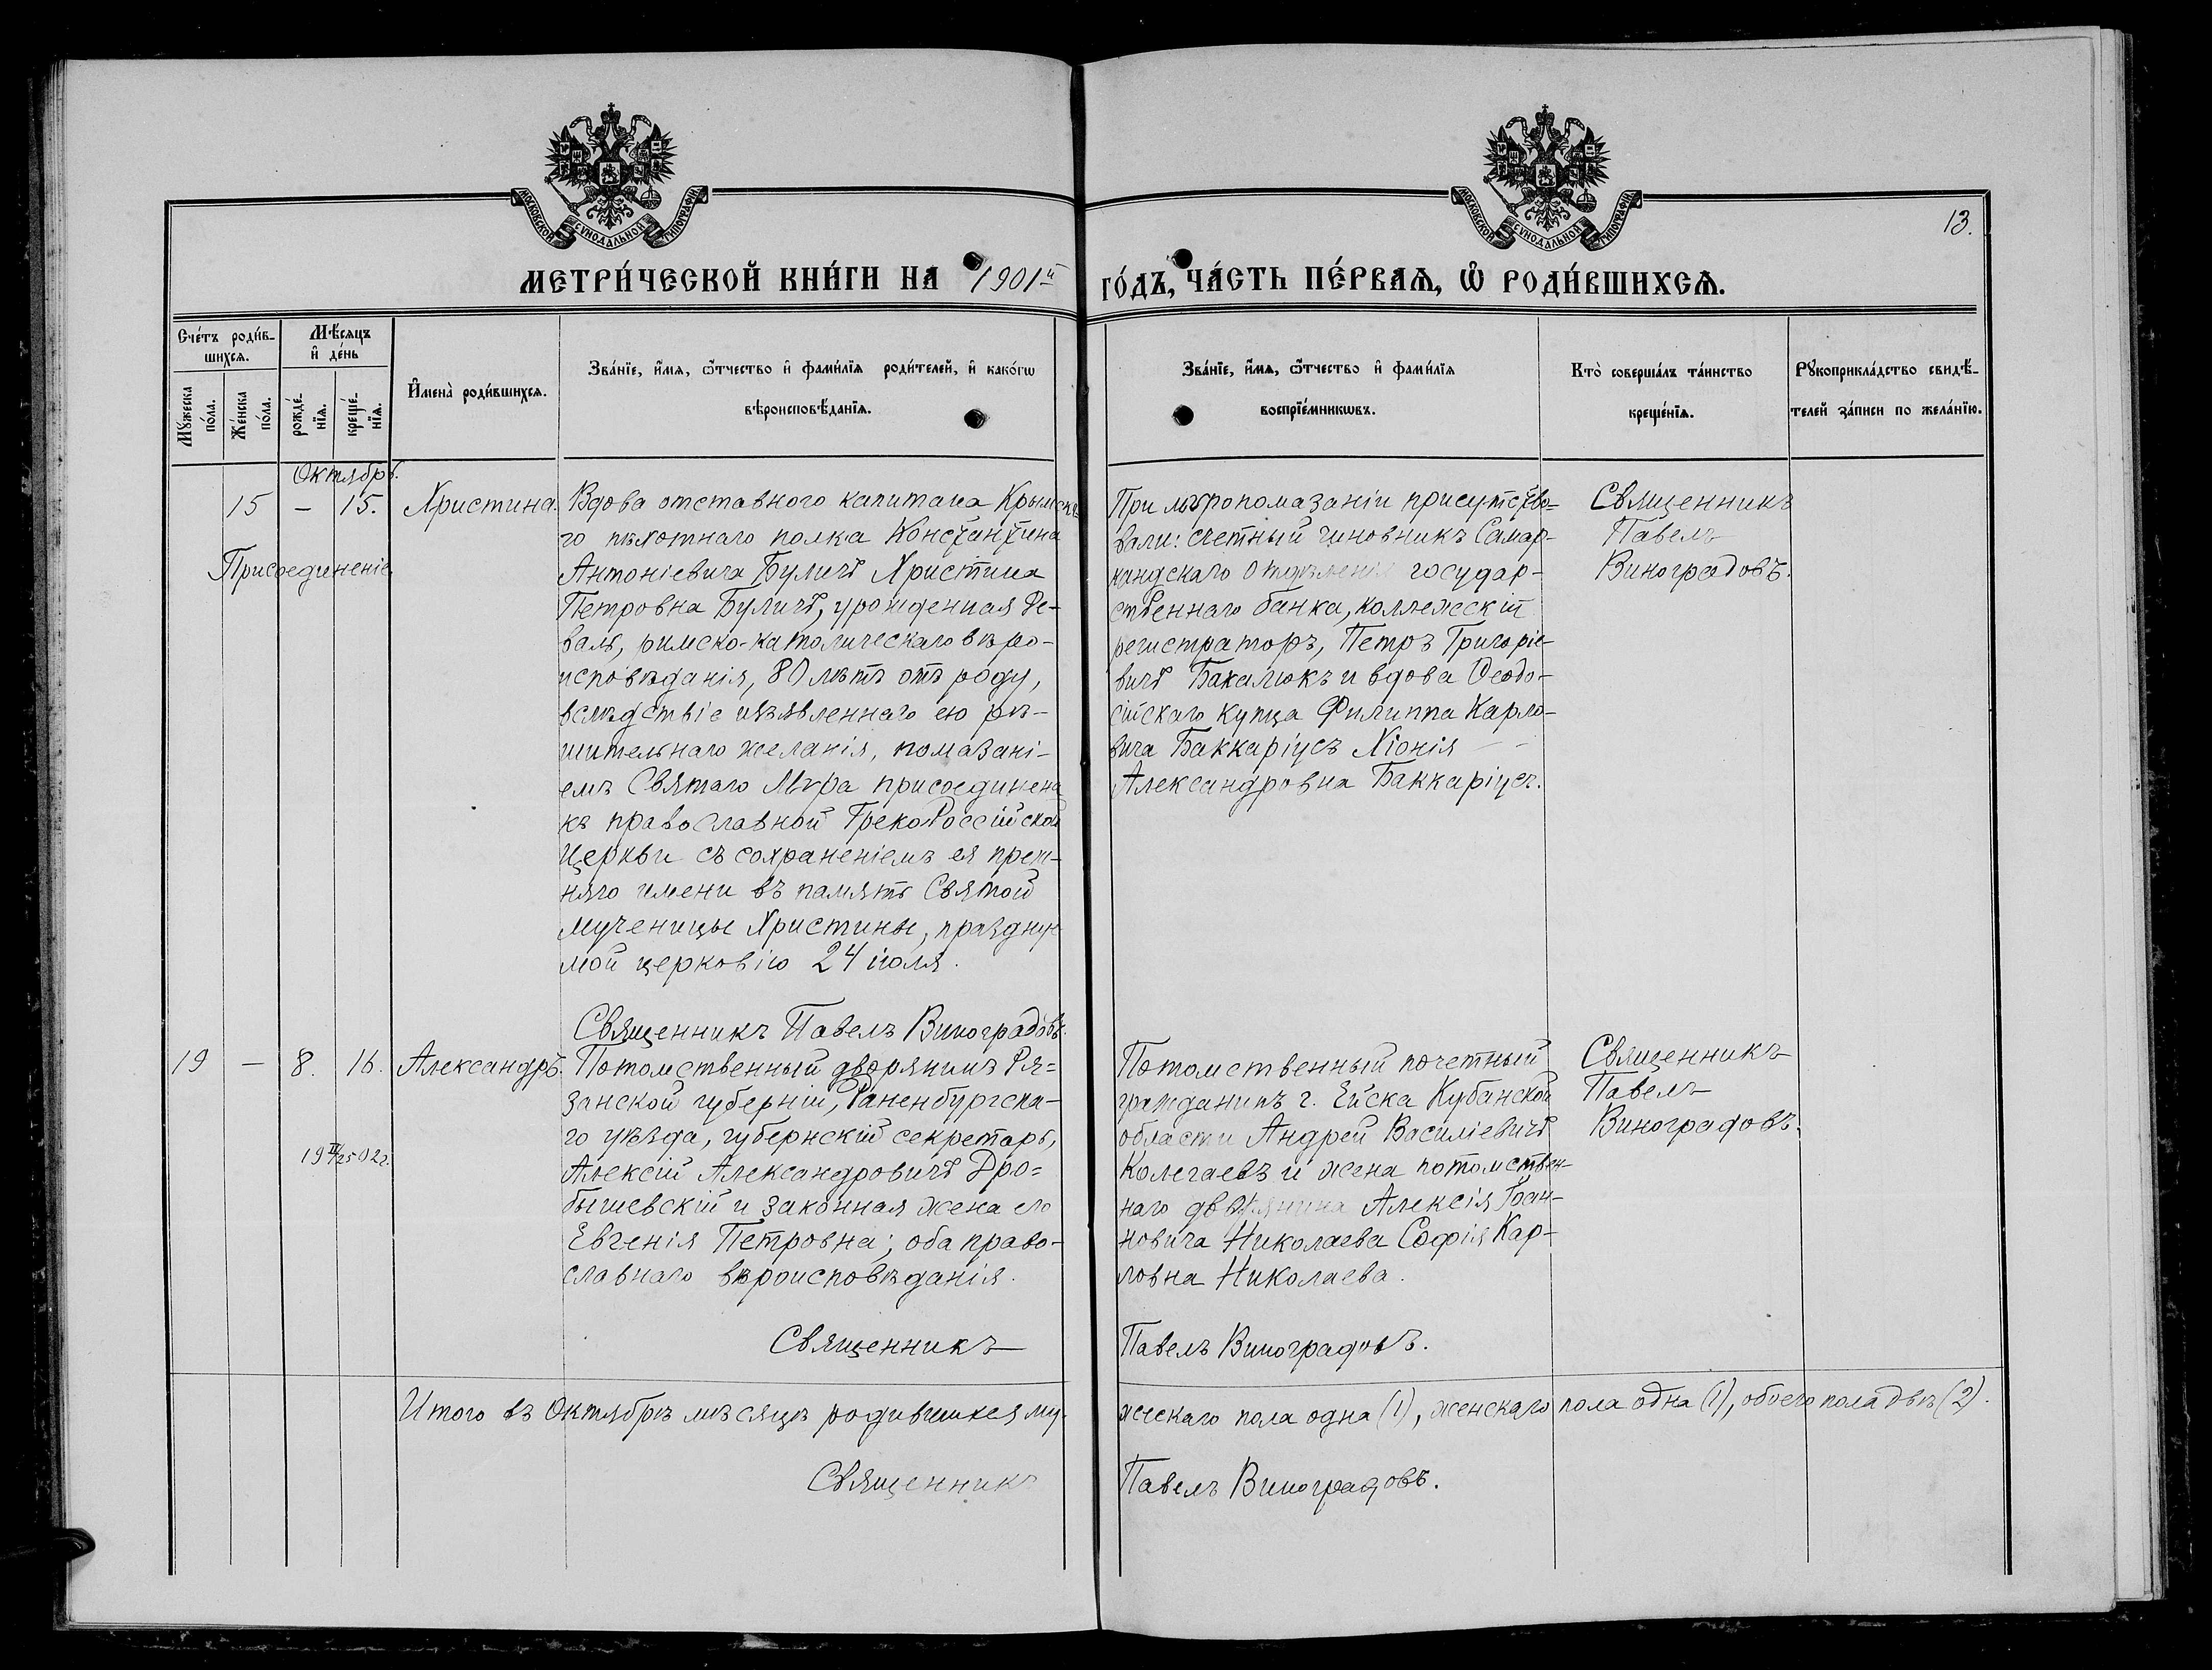 МОСКОВСКОЙ СѴНОДАЛЬНОЙ ТИПОГРАФІИ
МОСКОВСКОЙ СѴНОДАЛЬНОЙ ТИПОГРАФІИ
13.
МЕТРИ́ЧЕСКОЙ КНИ́ГИ НА 1901й го́дъ, ЧА́СТЬ ПЕ́РВАѦ, Ѡ҆ РОДИ́ВШИХСѦ.
Сче́тъ роди́в-
шихсѧ.
Мꙋ́жеска
по́ла.
Же́нска
по́ла.
Мѣ́сѧцъ
и҆ де́нь
рожде́-
нїѧ.
креще́-
нїѧ.
И҆мена̀ роди́вшихсѧ.
Зва́нїе, и҆́мѧ, ѻ҆́тчество и҆ фами́лїѧ роди́телей, и҆ како́гѡ
вѣроисповѣ́данїѧ.
Зва́нїе, и҆́мѧ, ѻ҆́тчество и҆ фами́лїѧ
воспрїе́мникѡвъ.
Кто̀ соверша́лъ та́инство
креще́нїѧ.
Рꙋкоприкла́дство свидѣ́-
телей за́писи по жела́нїю.
Октябрь.
15 – 15. Христина.
Присоединеніе.
Вдова отставного капитана Крымска-
го пѣхотнаго полка Константина
Антоніевича Буличъ Христина
Петровна Буличъ, урожденная Де-
валь, римско-католическаго вѣро-
исповѣданія, 80 лѣтъ отъ роду,
вслѣдствіе изъявленнаго ею рѣ-
шительнаго желанія, помазані-
емъ Святаго Мѵра присоединена
къ православной ГрекоРоссійской
Церкви съ сохраненіемъ ея преж-
няго имени въ память Святой
мученицы Христины, праздну
мой церковію 24 іюля.
Священникъ Павелъ Виноградовъ.
При мѵропомазаніи присутство-
вали: счетный чиновникъ Самар-
кандскаго Отдѣленія государ-
ственнаго банка, коллежскій
регистраторъ, Петръ Григоріе-
вичъ Бакалюкъ и вдова Ѳеодо-
сійскаго купца Филиппа Карло-
вича Баккаріусъ Хіонія
Александровна Баккаріусъ.
Священникъ
Павелъ
Виноградовъ.
19 – 8. 16. Александръ.
19 II/25 02 г.
Потомственный дворянинъ Ря-
занской губерніи, Раненбургска-
го уѣзда, губернскій секретарь,
Алексій Александровичъ Дро-
бышевскій и законная жена его
Евгенія Петровна; оба право-
славнаго вѣроисповѣданія.
Священникъ
Потомственный почетный
гражданинъ г. Ейска Кубанской
области Андрей Василіевичъ
Колегаевъ и жена потомствен-
наго дворянина Алексія Іоан-
новича Николаева Софія Кар-
ловна Николаева.
Павелъ Виноградовъ.
Священникъ
Павелъ
Виноградовъ.
Итого въ Октябрѣ мѣсяцѣ родившихся му-
жескаго пола одна (1), женскаго пола одна (1), обоего пола двѣ (2).
Священникъ
Павелъ Виноградовъ.